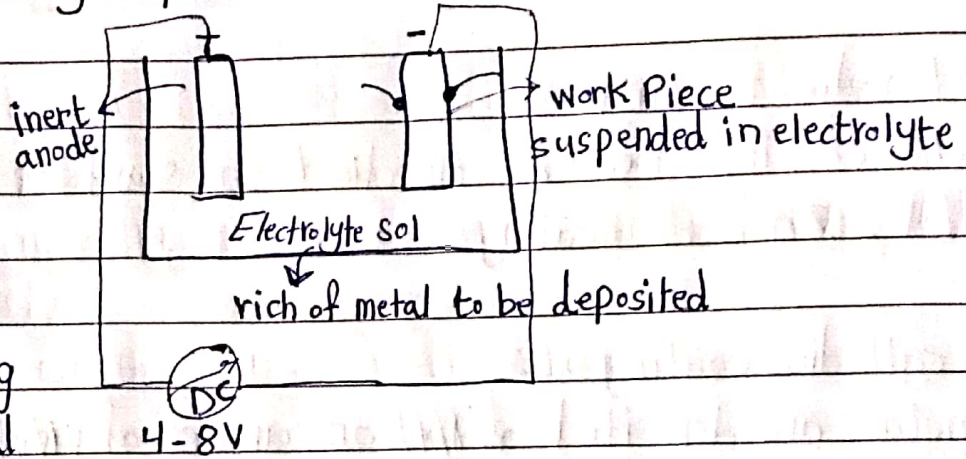 + -
inert
anode
Work Piece
suspended in electrolyte
Electrolyte sol
rich of metal to be deposited
DC
4-8V